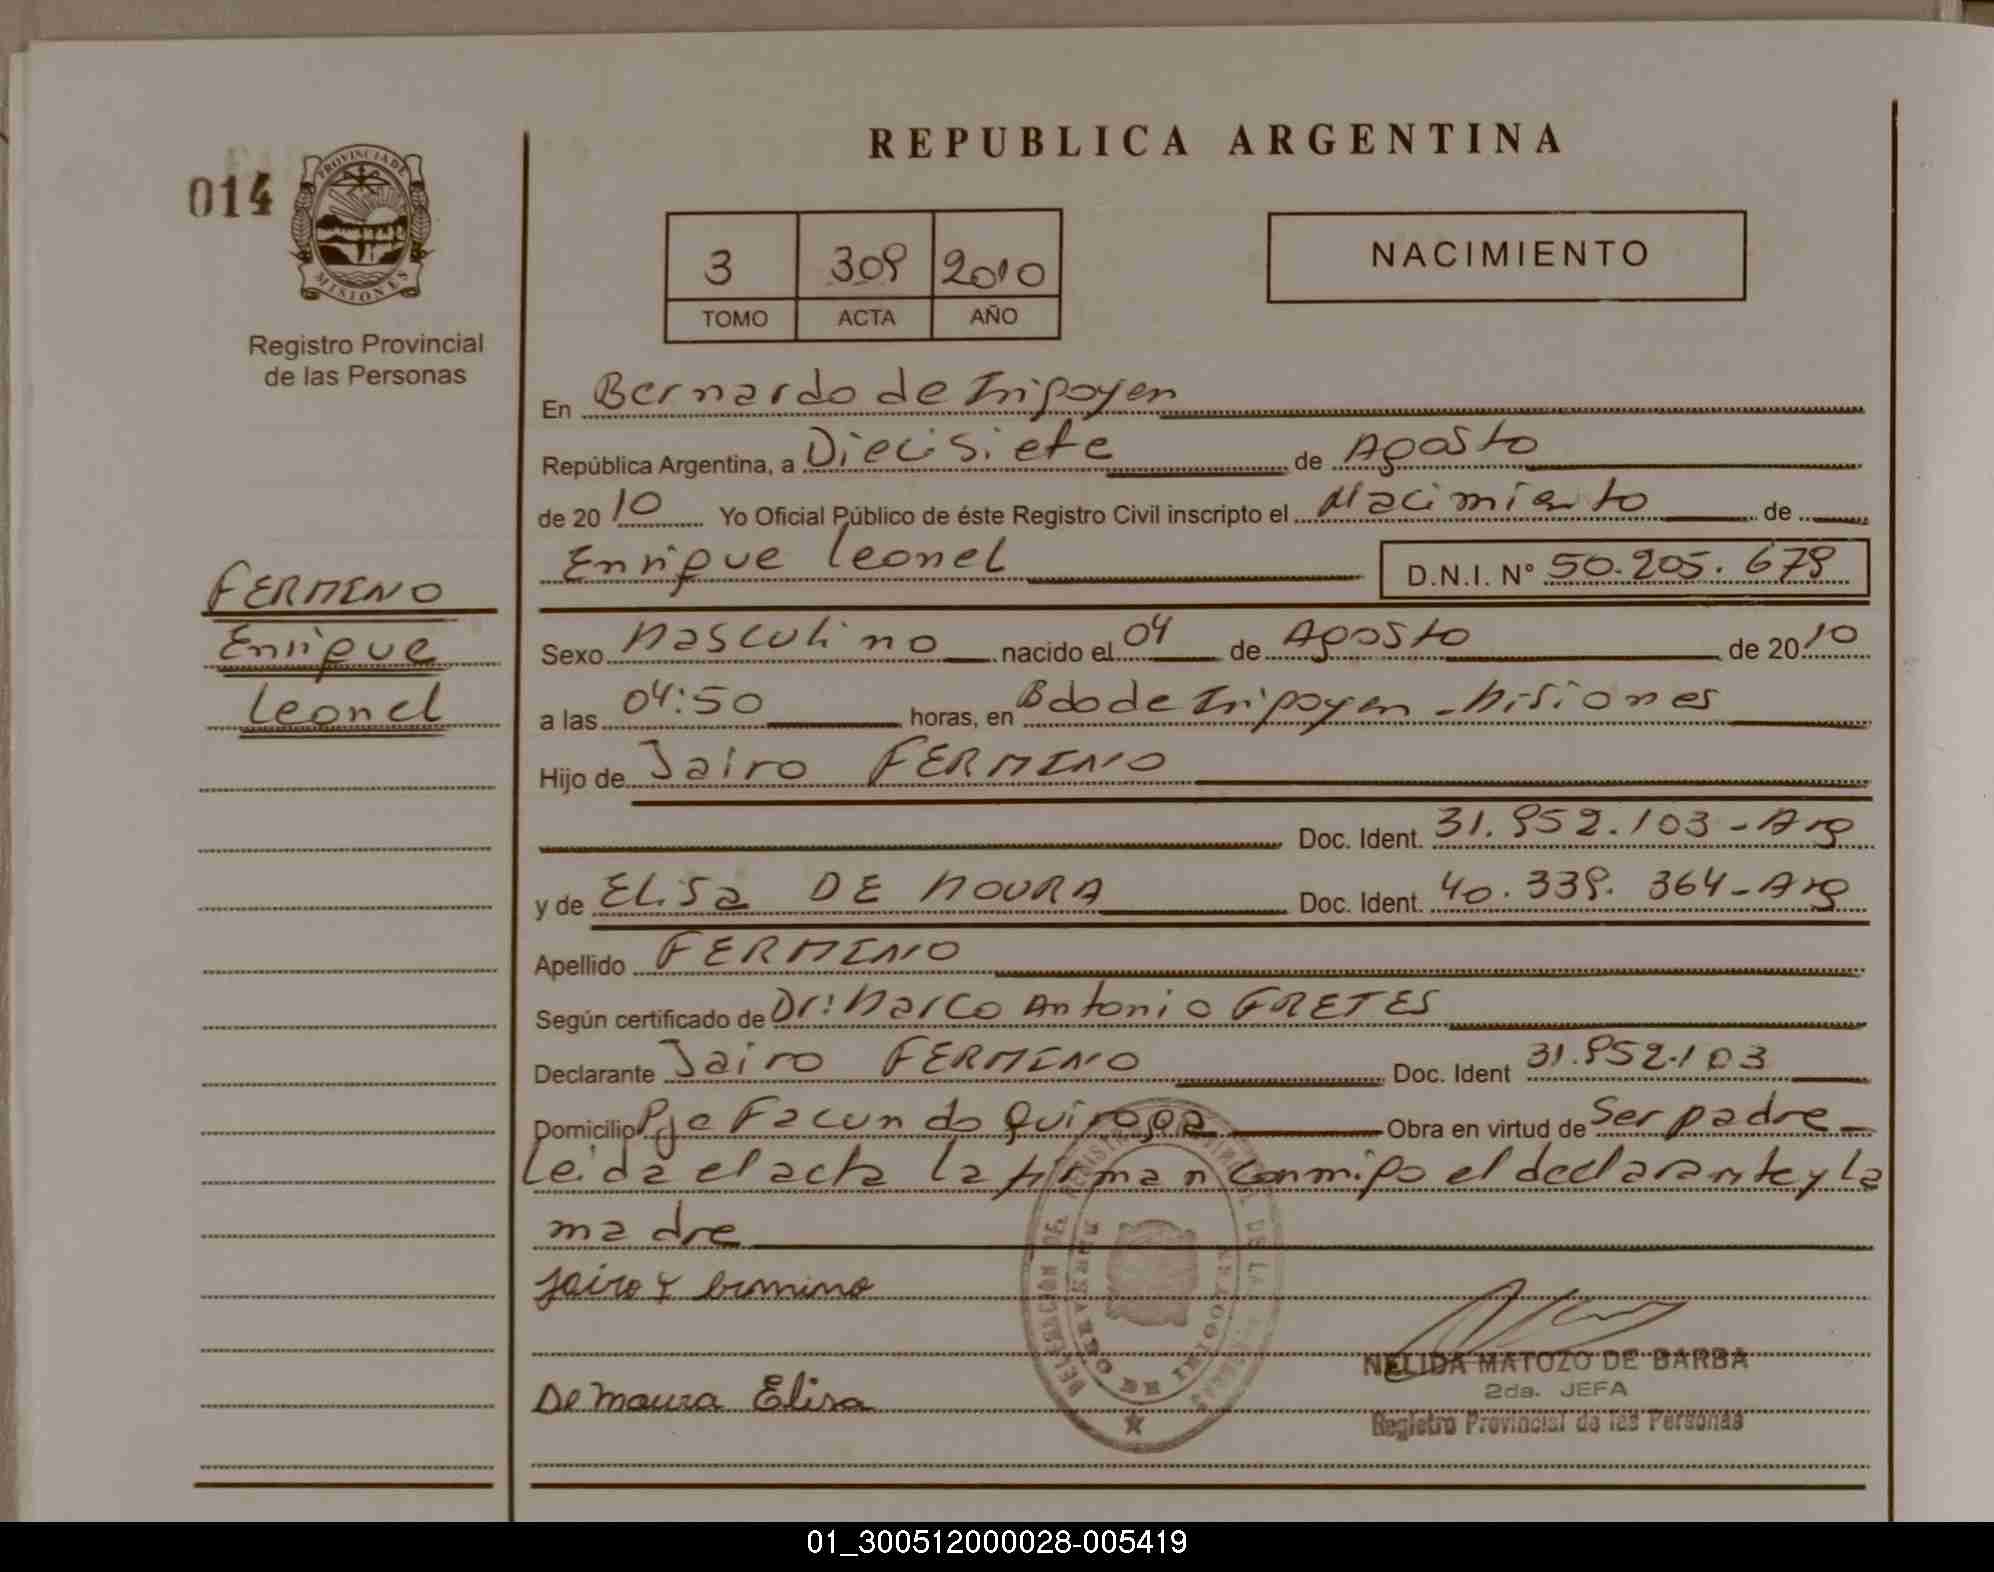 REPUBLICA ARGENTINA
014
PROVINCIA DE
MISIONES
Registro Provincial
de las Personas
3 309 2010
TOMO ACTA AÑO
NACIMIENTO
FERMINO
Enrique
Leonel
En Bernardo de Irigoyen
República Argentina, a Diecisiete de Agosto
de 20 10 Yo Oficial Público de éste Registro Civil inscripto el Nacimiento de
Enrique Leonel D.N.I. N° 50.205.679
Sexo Masculino nacido el 04 de Agosto de 20 10
a las 04:50 horas, en Bdo de Irigoyen - Misiones
Hijo de Jairo FERMINO
Doc. Ident. 31.952.103 - Arg
y de ELisa DE MOURA Doc. Ident. 40.339.364 - Arg
Apellido FERMINO
Según certificado de Dr: Marco Antonio FRETES
Declarante Jairo FERMINO Doc. Ident 31.952.103
Domicilio Pje Facundo Quiroga Obra en virtud de Ser padre
Leida el acta la firman conmigo el declarante y la
madre
Jairo Fermino
De Moura Elisa
DELEGACION DE
DE IRIGOYEN
NELIDA MATOZO DE BARBA
2da. JEFA
Registro Provincial de las Personas
01_300512000028-005419